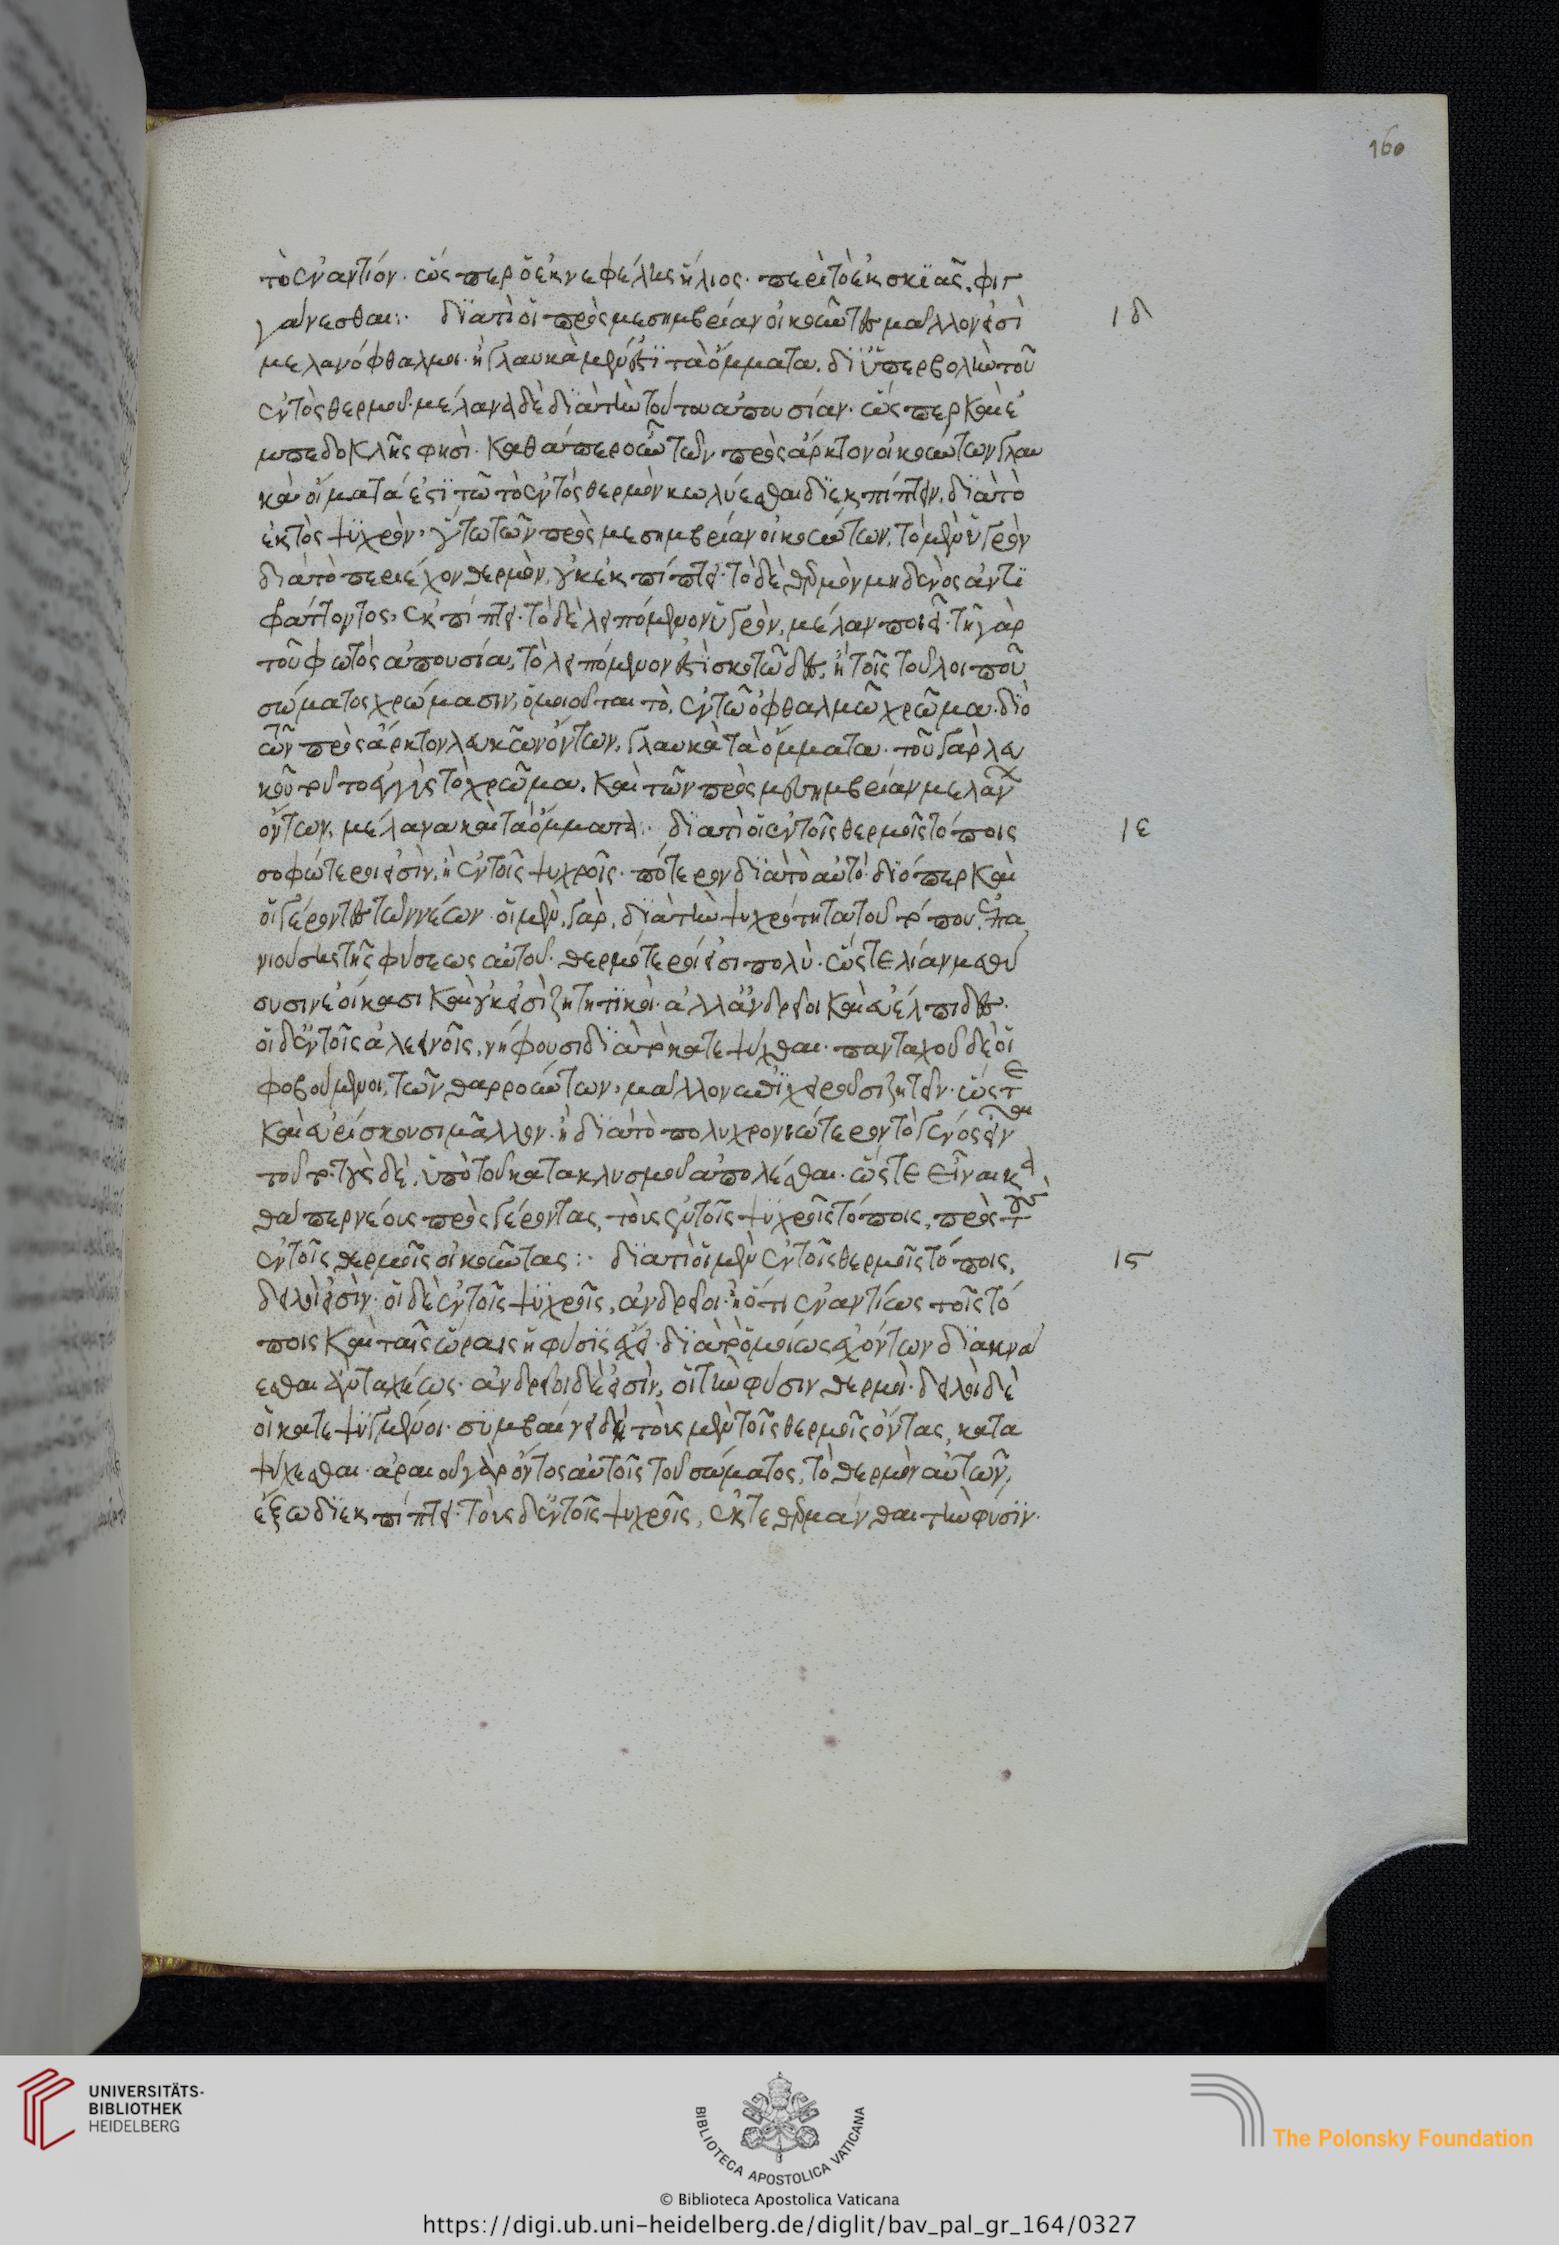 160
τὸ ἐναντίον. ὥσπερ ὁ ἐκ νεφέλης ἥλιος. περὶ τὸ ἐκ σκιᾶς, φιγ
γάνεσθαι: διατὶ οἱ πρὸς μεσημβρίαν οἰκοῦντες μᾶλλόν εἰσι
ιδ
μελανόφθαλμοι. ἢ γλαυκὰ μέν ἐστι τὰ ὄμματα. δι ὑπερβολὴν τοῦ
ἐντὸς θερμοῦ. μέλανα δὲ διὰ τὴν τούτου ἀπουσίαν. ὥσπερ καὶ ἐ
μπεδοκλῆς φησί. καθάπερ οὖν τῶν πρὸς ἄρκτον οἰκούντων γλαυ
κὰ ὄμματά ἐστι τῶ τὸ ἐντὸς θερμὸν κωλύεσθαι διεκπίπτειν, διὰ τὸ
ἐκτὸς ψυχρόν, οὕτω τῶν πρὸς μεσημβρίαν οἰκούντων, τὸ μὲν ὑγρὸν
διὰ τὸ περιέχον θερμὸν, οὐκ ἐκπίπτει. τὸ δὲ θερμὸν μηδενὸς ἀντι
φράττοντος, ἐκπίπτει. τὸ δὲ λειπόμενον ὑγρὸν, μέλαν ποιεῖ. τῆ γὰρ
τοῦ φωτὸς ἀπουσία, τὸ λειπόμενον ἐστὶ σκοτῶδες, ἢ τοῖς τοῦ λοιποῦ
σώματος χρώμασιν, ὁμοιοῦται τὸ, ἐν τῶ ὀφθαλμῶ χρῶμα. διὸ
τῶν πρὸς ἄρκτον λευκῶν ὄντων, γλαυκὰ τὰ ὄμματα. τοῦ γὰρ λευ
κοῦ τοῦτο ἐγγὺς τὸ χρῶμα. καὶ τῶν πρὸς μεσημβρίαν μελάνων
ὄντων, μέλανα καὶ τὰ ὄμματα: διατὶ οἱ ἐν τοῖς θερμοῖς τόποις
ιε
σοφώτεροί εἰσιν, ἢ ἐν τοῖς ψυχροῖς. πότερον διὰ τὸ αὐτὸ διόπερ καὶ
οἱ γέροντες τῶν νέων. οἱ μὲν, γὰρ, διὰ τὴν ψυχρότητα τοῦ τόπου ἐπα
νιούσης τῆς φύσεως αὐτοῦ. θερμότεροί εἰσι πολύ. ὥστε λίαν μεθύ
ουσιν ἐοίκασι καὶ οὐκ εἰσὶ ζητητικοὶ. ἀλλ' ἀνδρεῖοι καὶ εὐέλπιδες.
οἱ δ' ἐν τοῖς ἀλεεινοῖς, νήφουσι διὰ τὸ κατεψῦχθαι. πανταχοῦ δὲ οἱ
φοβούμενοι, τῶν θαρρούντων, μᾶλλον ἐπιχειροῦσι ζητεῖν. ὥστε
καὶ εὑρίσκουσι μᾶλλον. ἢ διὰ τὸ πολυχρονιώτερον τὸ γένος εἶναι
τοῦτο. τοὺς δὲ, ὑπὸ τοῦ κατακλυσμοῦ ἀπολέσθαι. ὥστε εἶναι κα
θάπερ νέους πρὸς γέροντας, τοὺς ἐν τοῖς ψυχροῖς τόποις, πρὸς τοὺς
ἐν τοῖς θερμοῖς οἰκοῦντας: διατὶ οἱ μὲν ἐν τοῖς θερμοῖς τόποις,
ις
δειλοί εἰσιν. οἱ δὲ ἐν τοῖς ψυχροῖς, ἀνδρεῖοι. ἢ ὅτι ἐναντίως τοῖς τό
ποις καὶ ταῖς ὥραις ἡ φύσις ἔχει. διὰ τὸ ὁμοίως ἐχόντων διακναί
εσθαι ἂν ταχέως. ἀνδρεῖοι δέ εἰσιν, οἱ τὴν φύσιν θερμοί. δειλοὶ δὲ
οἱ κατεψυγμένοι. συμβαίνει δὴ τοὺς μὲν ἐν τοῖς θερμοῖς ὄντας, κατα
ψύχεσθαι. ἀραιοῦ γὰρ ὄντος αὐτοῖς τοῦ σώματος, τὸ θερμὸν αὐτῶν,
ἔξω διεκπίπτει. τοὺς δ' ἐν τοῖς ψυχροῖς, ἐκτεθερμάνθαι τὴν φύσιν.
UNIVERSITÄTS-
BIBLIOTHEK
HEIDELBERG
BIBLIOTECA APOSTOLICA VATICANA
© Biblioteca Apostolica Vaticana
The Polonsky Foundation
https://digi.ub.uni-heidelberg.de/diglit/bav_pal_gr_164/0327